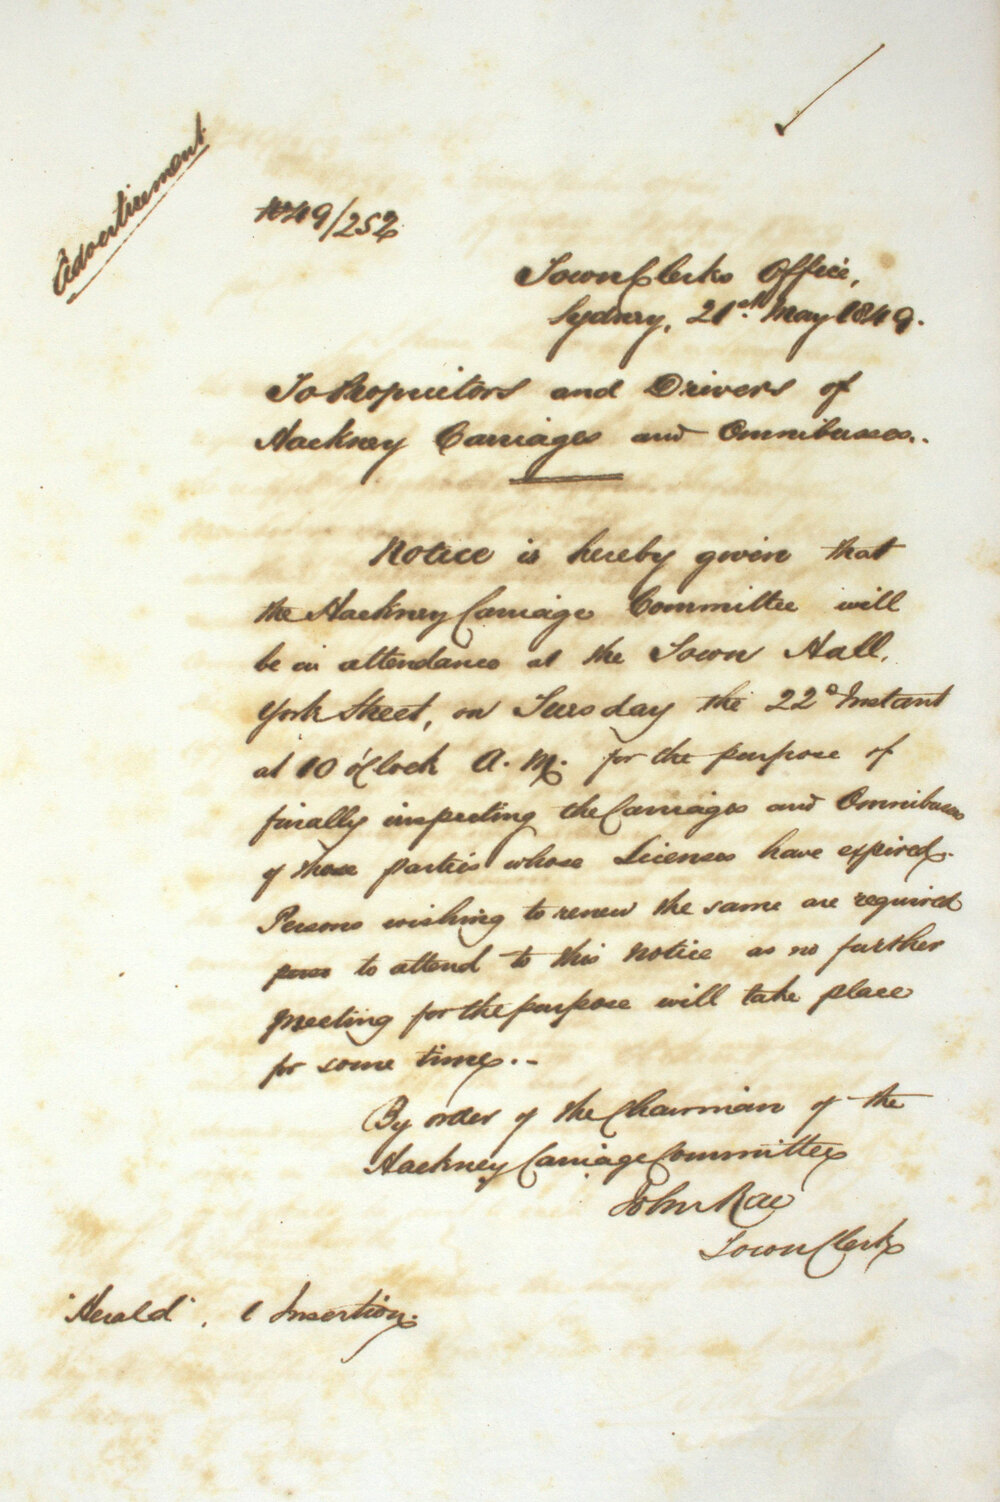 Advertisement
No 49/252
Town Clerks Office,
Sydney, 21st May 1849.
To Proprietors and Drivers of
Hackney Carriages and Omnibuses..
Notice is hereby given that
the Hackney Carriage Committee will
be in attendance at the Town Hall,
York Street, on Tuesday the 22d Instant
at 10 o'Clock A. M. for the purpose of
finally inspecting the Carriages and Omnibuses
of those parties whose Licenses have expired.
Persons wishing to renew the same are required
to attend to this Notice as no further
Meeting for the purpose will take place
for some time..-
By order of the Chairman of the
Hackney Carriage Committee
John Rae
Town Clerk
"Herald". 1 Insertion.